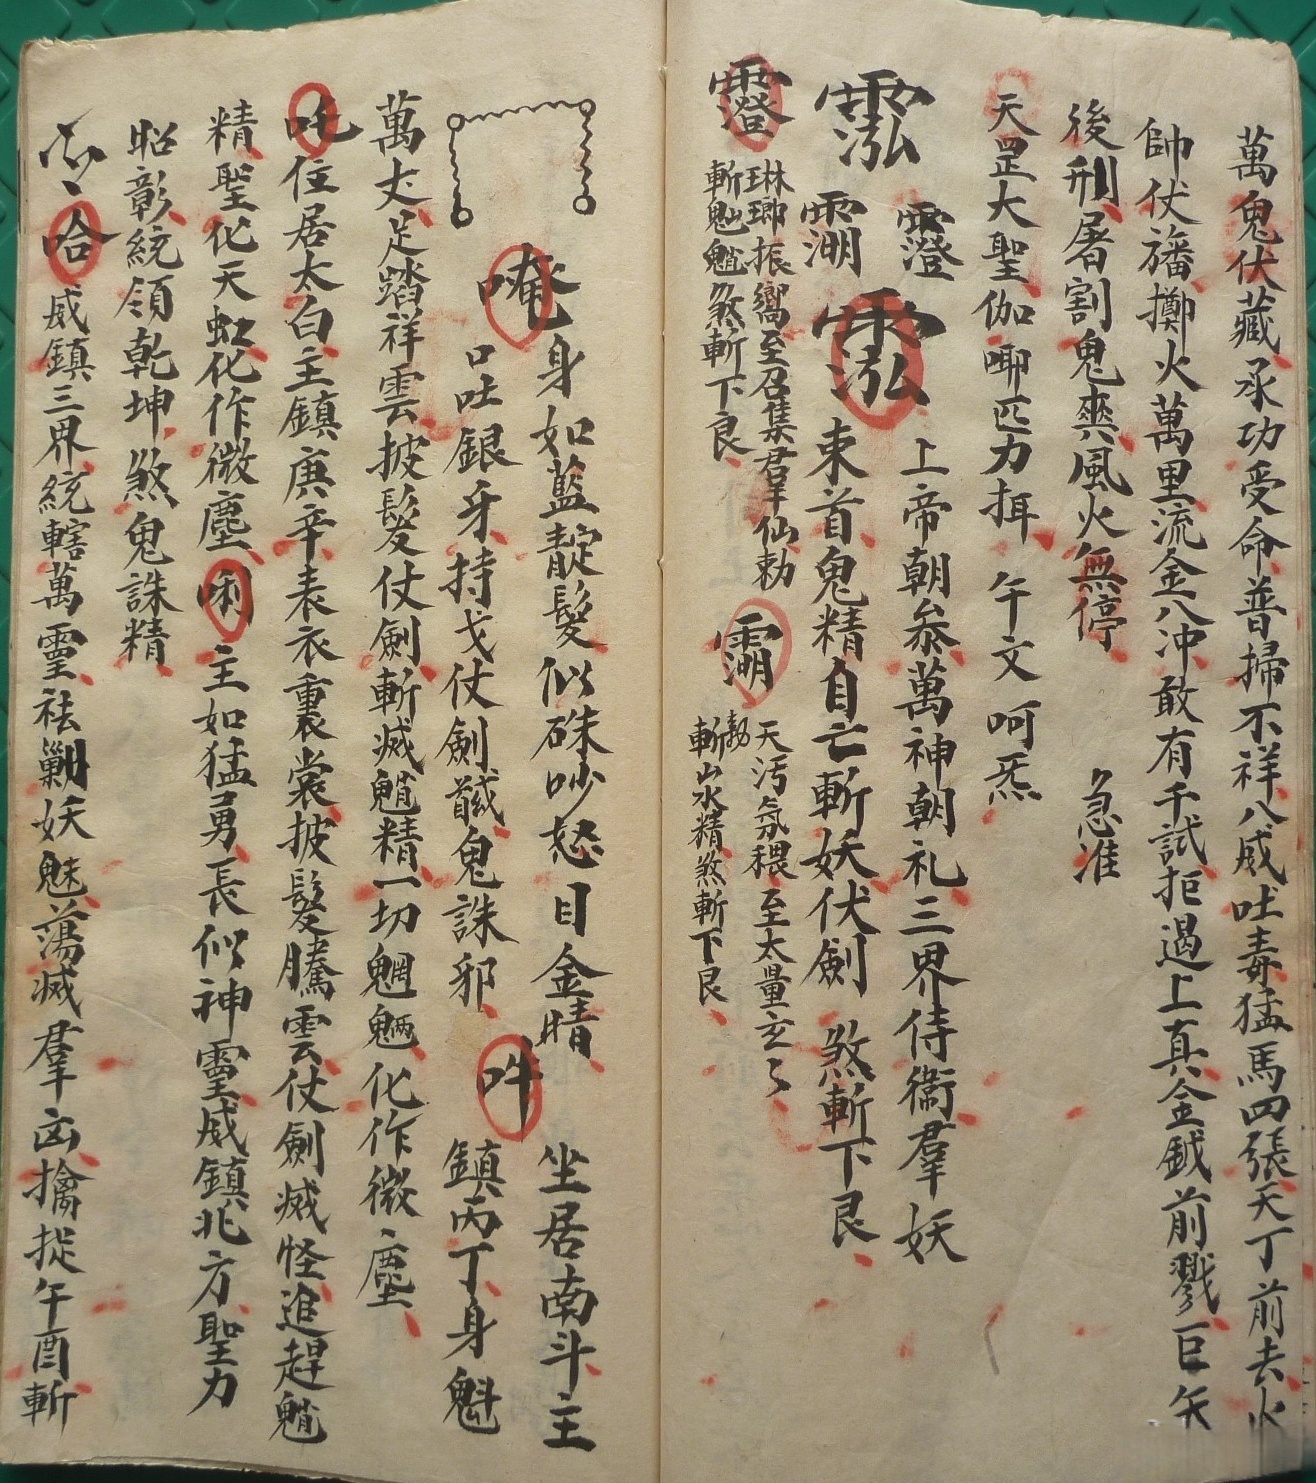 萬鬼伏藏承功受命普掃不祥八威吐毒猛馬四張天丁前去火
帥伏旛擲火萬里流金八冲敢有千試拒遏上真金鉞前戮巨天
後刑屠割鬼爽風火無停 急准
天罡大聖伽唧匹力搑 午文呵炁
霐 靈 上帝朝叅萬神朝礼三界侍衞羣妖
束首鬼精自亡斬妖伏劍 煞斬下良
琳瑯振嚮至召集君羊仙勅
斬魈煞斬下良
天汚氛穢至太量玄々
勅斬山水精煞斬下良
唵 身如藍靛髮似硃吵怒目金睛
口吐銀牙持戈仗劍馘鬼誅邪
吽 坐居南斗主
鎮丙丁身魁
萬丈足踏祥雲披髮仗劍斬滅精一切魍魎化作微塵
吒住居太白主鎮庚辛表衣裏裳披髮騰雲仗劍滅怪追趕
精聖化天虹化作微塵 唎 主如猛勇長似神靈威鎮北方聖力
昭彰統領乾坤煞鬼誅精
哈 威鎮三界統轄萬靈祛勦妖魅蕩滅羣凶擒捉午酉斬